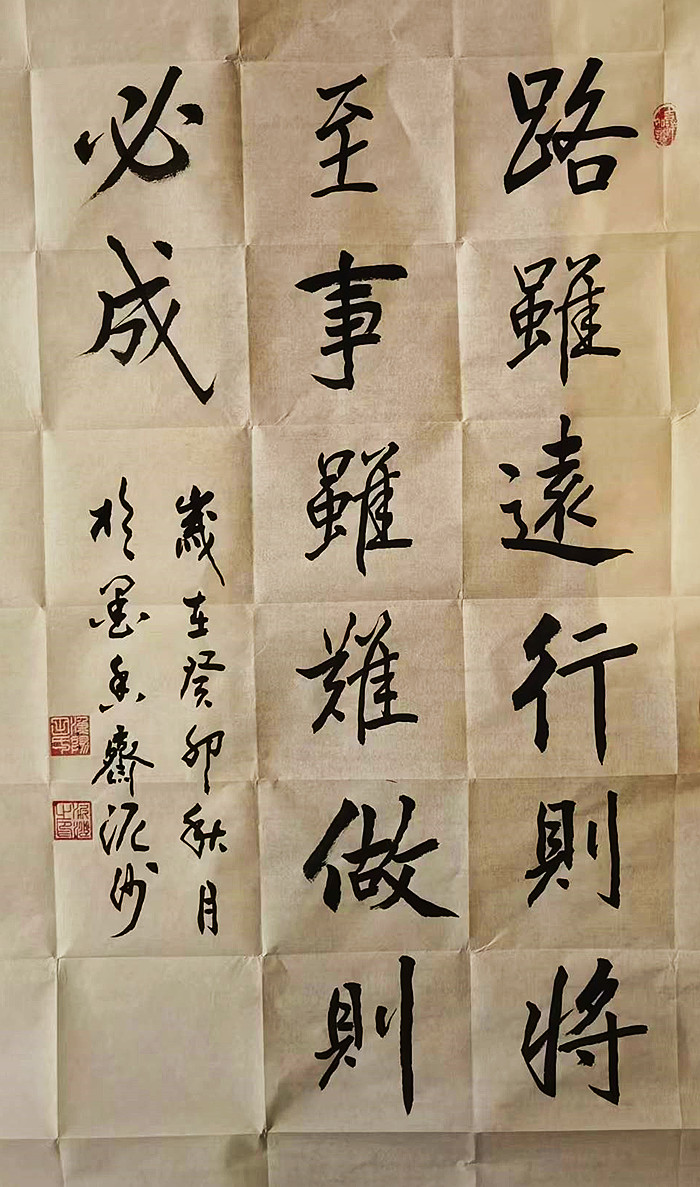 路雖遠行則將
至事雖難做則
必成
歲在癸卯秋月
於墨香齋泥沙